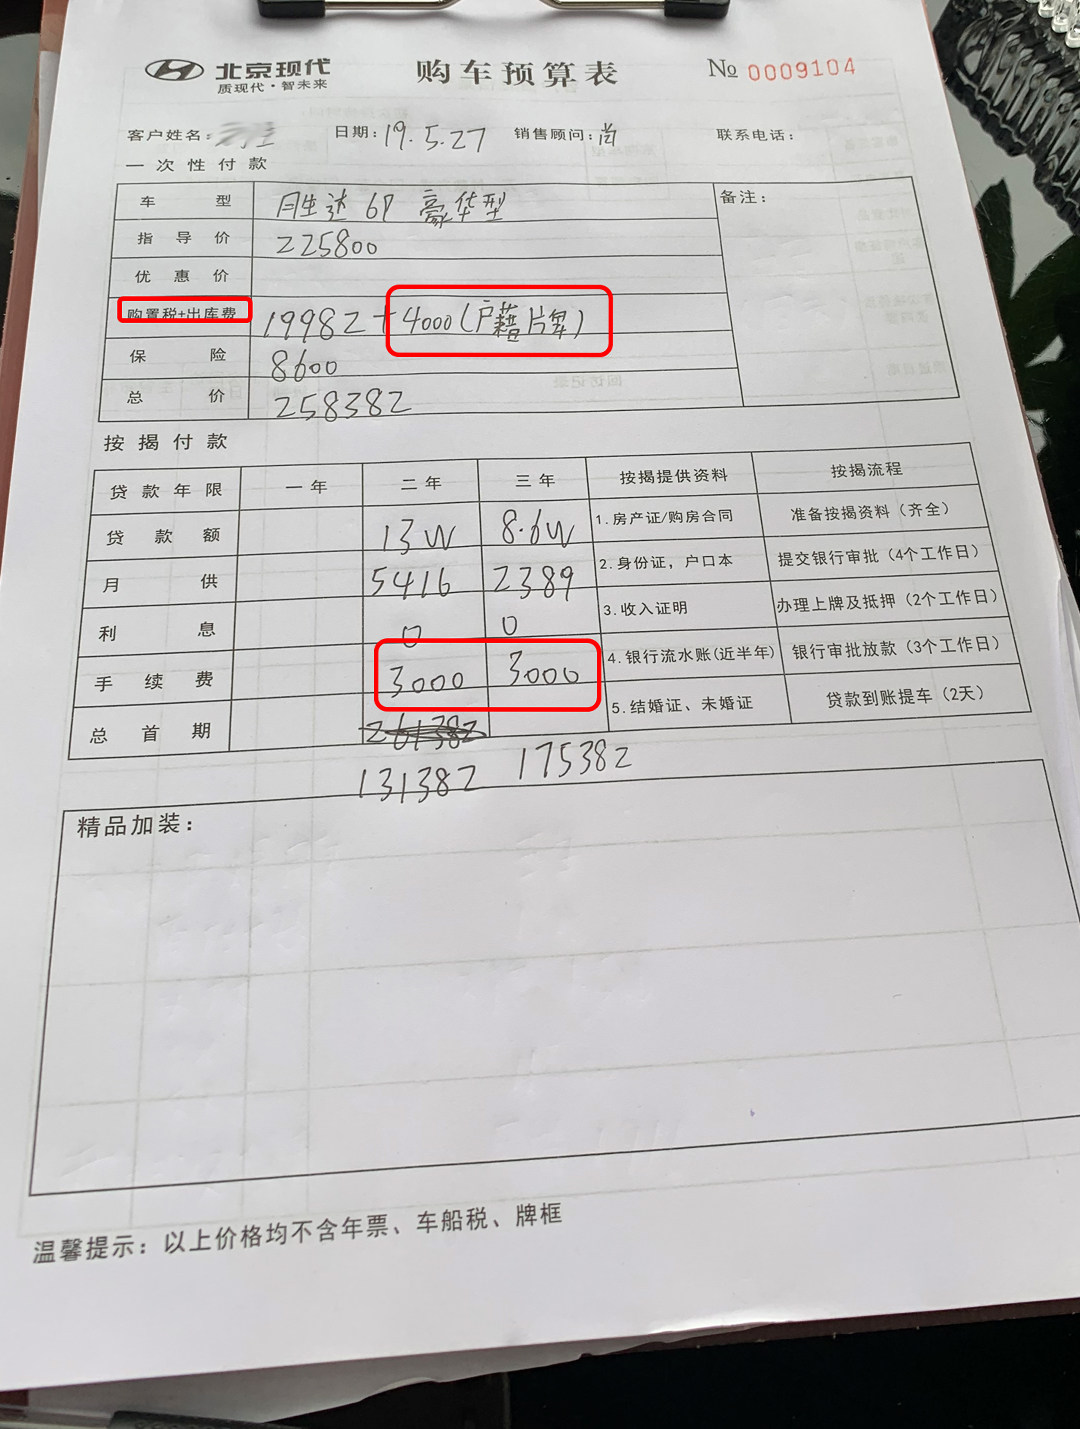 北京现代
质现代·智未来
购车预算表
№ 0009104
客户姓名: 日期: 19.5.27 销售顾问: 尚 联系电话:
一次性付款
车型 胜达 6P 豪华型 备注:
指导价 225800
优惠价
购置税+出库费 19982+4000(户籍片牌)
保险 8600
总价 258382
按揭付款
贷款年限 一年 二年 三年 按揭提供资料 按揭流程
贷款额 13W 8.6W 1.房产证/购房合同 准备按揭资料(齐全)
月供 5416 2389 2.身份证,户口本 提交银行审批(4个工作日)
利息 0 0 3.收入证明 办理上牌及抵押(2个工作日)
手续费 3000 3000 4.银行流水账(近半年) 银行审批放款(3个工作日)
总首期 261382 5.结婚证、未婚证 贷款到账提车(2天)
131382 175382
精品加装:
温馨提示:以上价格均不含年票、车船税、牌框